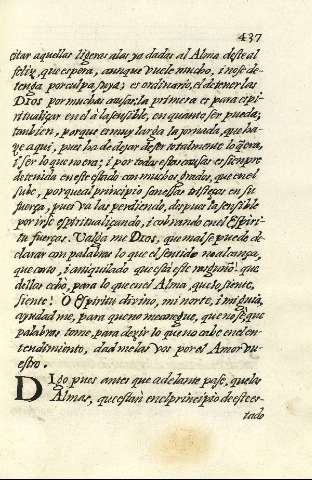 437
citar aquellas ligeras alas ya dadas al Alma deste al
feliz, que espera, aunque vuele mucho, i no se de-
tenga por culpa suya; es ordinario, el detener las
Dios por muchas causas. la primera es para espi-
ritualizar en el à la sensible, en quanto ser pueda;
tambien, porque es muy larga la jornada, que ha-
ze aqui, pues ha de dexar de ser totalmente lo q̃ era,
i ser lo que no era; i por todas estas causas es siempre
detenida en este estado con muchos grados, que en el
sube, porque al principio son essas tristezas en su
fuerça, pues va las perdiendo, despues la sensible
por irse espiritualiçando, i cobrando en el Espiri-
tu fuerças. Valga me Dios, que mal se puede de-
clarar con palabras lo que el sentido no alcança,
que corto, i aniquilado que està este mi que
dellas echo, para lo que en el Alma, que lo siente,
siente! O Espiritu divino, mi norte, i mi guia,
ayudad me, para que no me anegue, que no sè que
palabras tome, para dezir lo que no cabe en el en-
tendimiento, dad melas vos por el Amor vu-
estro.
Digo pues antes que adelante passe, que las
Almas, que estan en el principio de este es-
tado